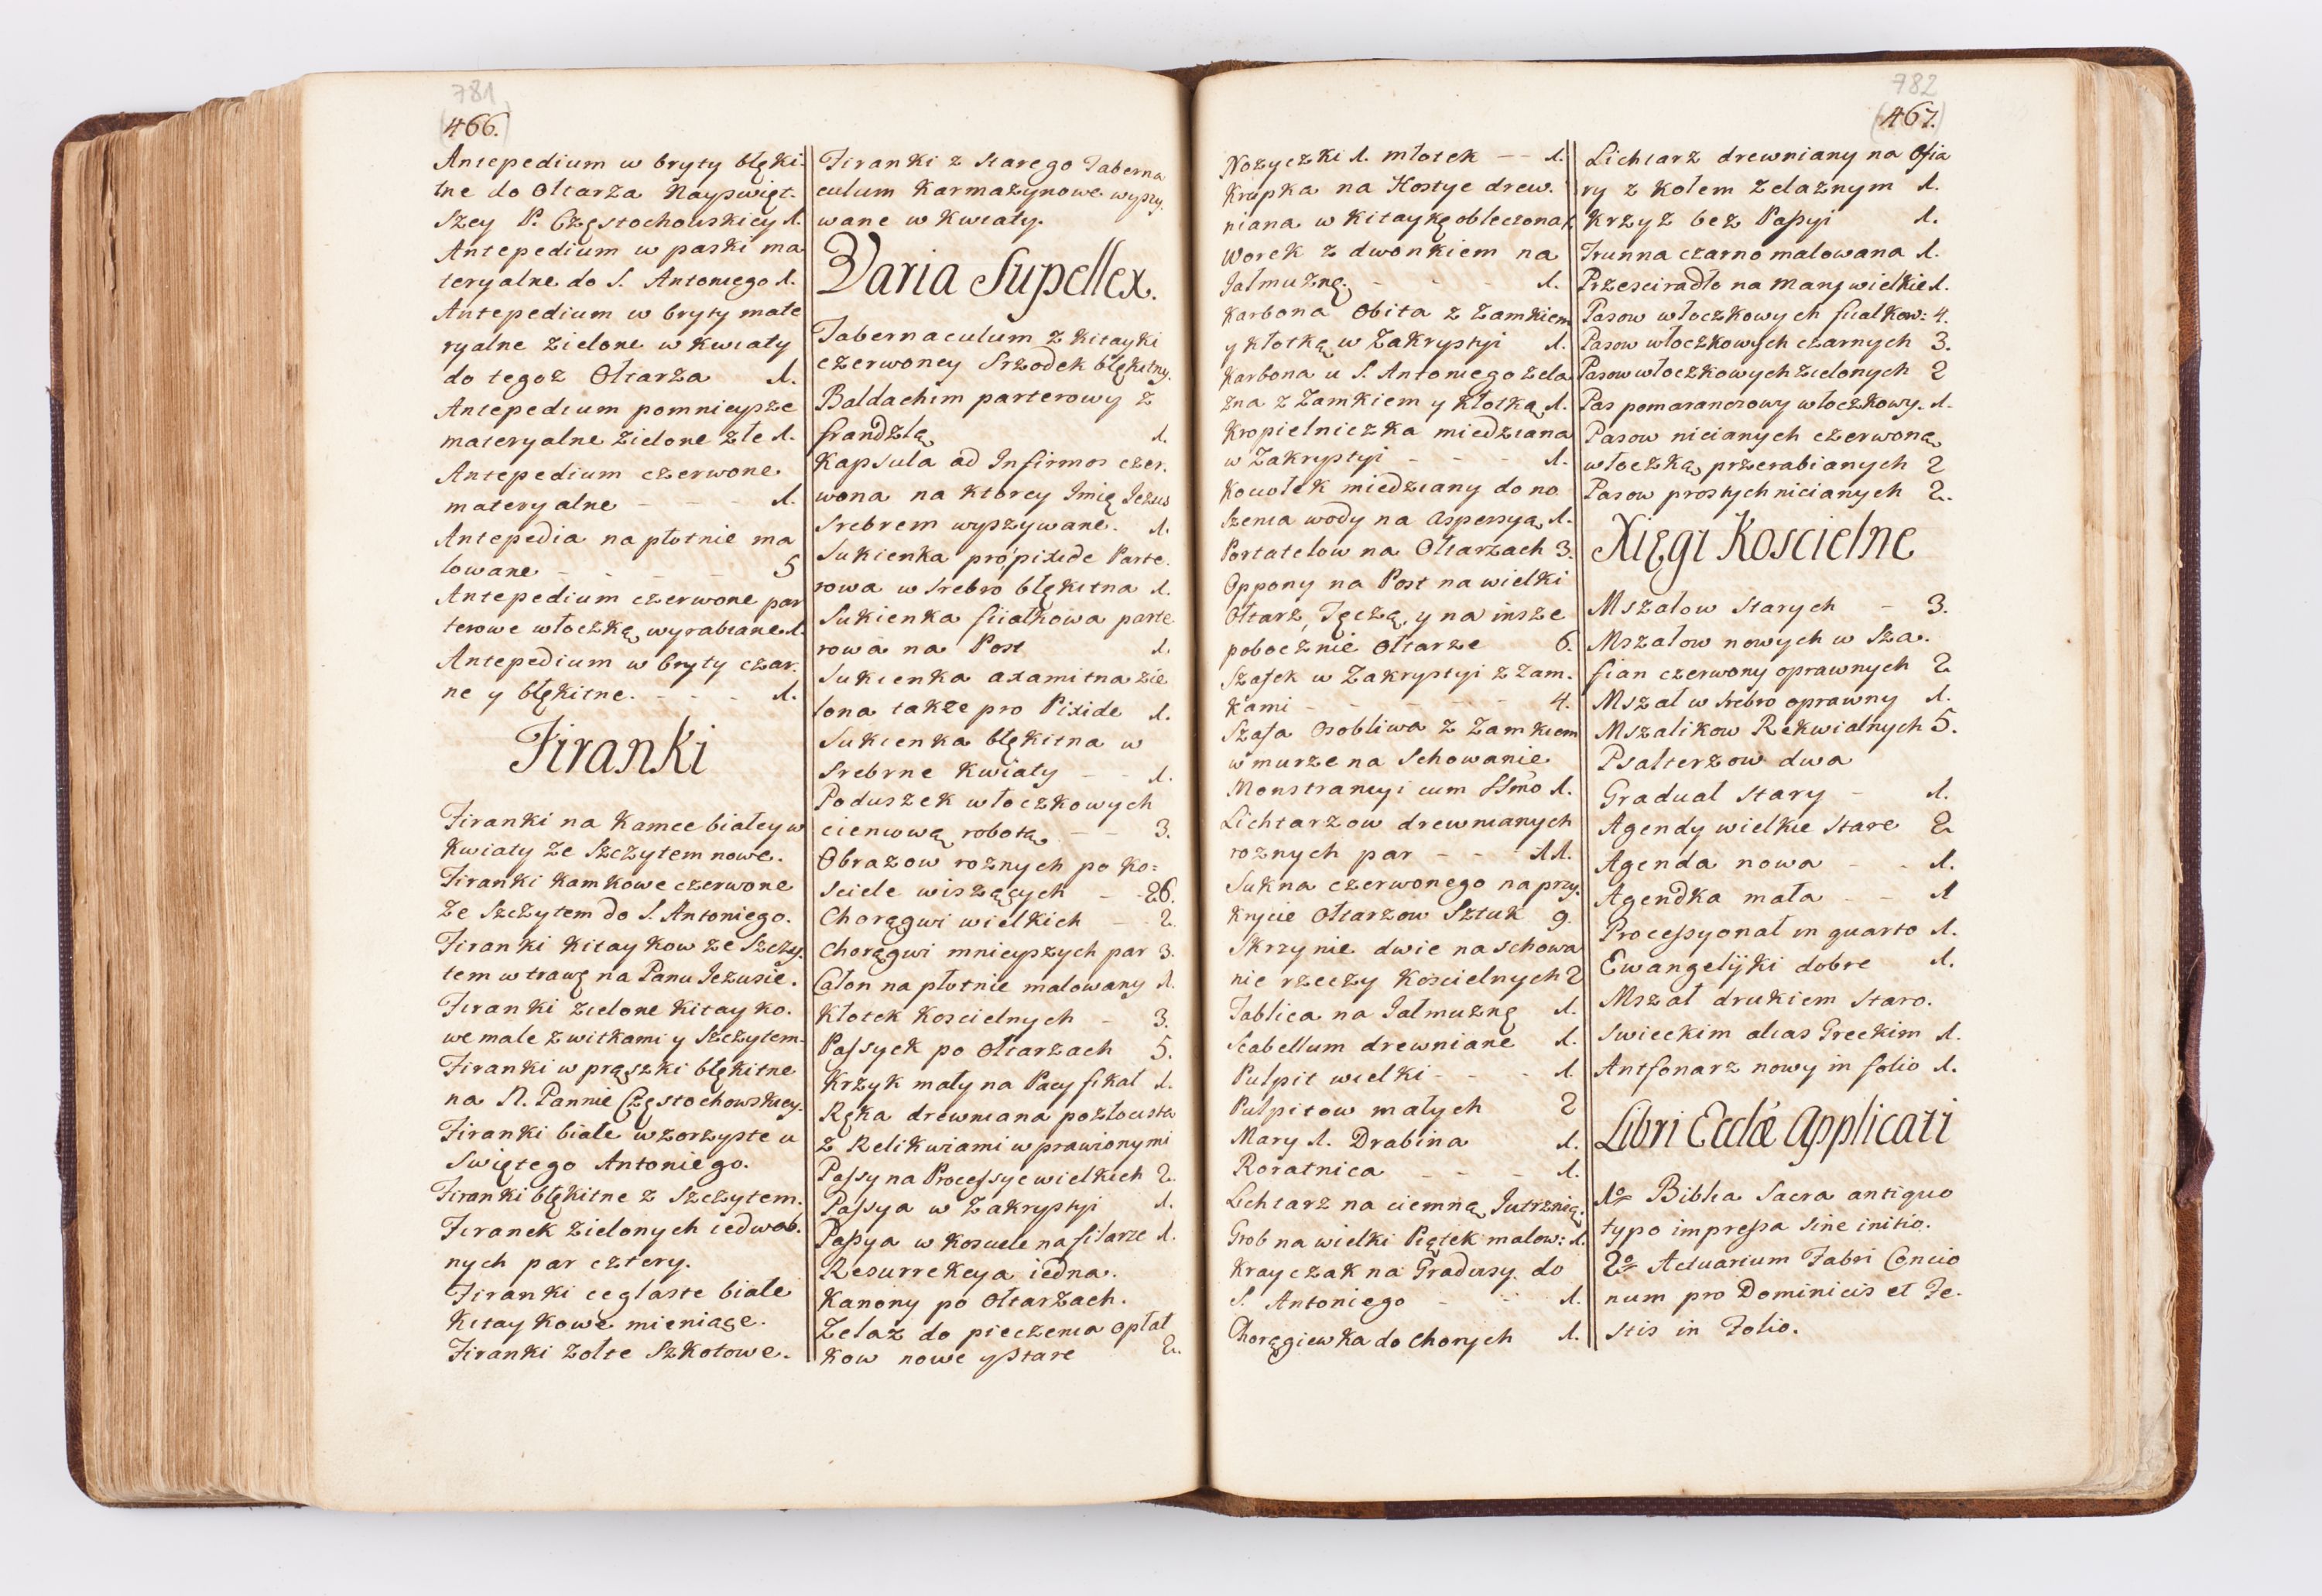 781
466.
Antepedium w bryty błęki-
tne do Ołtarza Nayswięt.
szey P. Częstochowskiey 1.
Antepedium w paski ma
teryalne do S. Antoniego 1.
Antepedium w bryty mate
ryalne zielone w kwiaty
do tegoż Ołtarza 1.
Antepedium pomnieysze
materyalne zielone złe 1.
Antepedium czerwone
materyalne - - - 1.
Antepedia na płotnie ma
lowane - - - - 5
Antepedium czerwone par
terowe włoczką wyrabiane 1.
Antepedium w bryty czar.
ne y błękitne. - - - 1.
Firanki
Firanki na Kamce białey w
kwiaty ze szczytem nowe.
Firanki kamkowe czerwone
ze szczytem do S. Antoniego.
Firanki kitaykow ze szczy.
tem w trawę na Panu Jezusie.
Firanki zielone kitayko.
we małe z witkami y szczytem.
Firanki w prążki błękitne
na N. Pannie Częstochowskiey.
Firanki białe wzorzyste u
Swiętego Antoniego.
Firanki błękitne z szczytem.
Firanek zielonych iedwab.
nych par cztery.
Firanki ceglaste białe
kitaykowe mieniące.
Firanki żołte Szkotowe.
Firanki z starego Taberna
culum karmazynowe wyszy.
wane w kwiaty.
Varia Supellex.
Tabernaculum z kitayki
czerwoney srzodek błękitny.
Baldachim parterowy z
frandzlą 1.
Kapsula ad Infirmos czer.
wona na ktorey Imię Jezus
srebrem wyszywane. 1.
Sukienka pro pixide Parte.
rowa w srebro błękitna 1.
Sukienka fiiałkowa parte
rowa na Post 1.
Sukienka axamitna zie
lona także pro Pixide 1.
Sukienka błękitna w
srebrne kwiaty - - 1.
Poduszek włoczkowych
cieniową robotą - - 3.
Obrazow roznych po ko:
sciele wiszących - - 26.
Chorągwi wielkich - 2.
Chorągwi mnieyszych par 3.
Całon na płotnie malowany 1.
Kłotek Koscielnych - 3.
Passyek po Ołtarzach 5.
Krzyk mały na Pacyfikał 1.
Ręka drewniana pozłocista
z Relikwiami wprawionymi
Passy na Processye wielkich 2.
Passya w Zakrystyi 1.
Passya w Kosciele na filarze 1.
Resurrekcya iedna.
Kanony po Ołtarzach.
Zelaz do pieczenia opłat
kow nowe y stare 2.
782
467.
Nozyczki 1. młotek - - 1.
Krupka na Hostye drew.
niana w kitaykę obleczona 1.
Worek z dwonkiem na
Jałmużnę. - - - 1.
Karbona obita z zamkiem
y kłotką w Zakrystyi 1.
Karbona u S. Antoniego zela
zna z zamkiem y kłotką 1.
Kropielniczka miedziana
w Zakrystyi - - - 1.
Kociołek miedziany do no
szenia wody na aspersyą 1.
Portatelow na Ołtarzach 3.
Oppony na Post na wielki
Ołtarz, Tęczą, y na insze
pobocznie Ołtarze 6.
Szafek w Zakrystyi z zam.
kami - - - - - 4.
Szafa osobliwa z zamkiem
w murze na schowanie
Monstrancyi cum SSmo 1.
Lichtarzow drewnianych
roznych par - - - 11.
Sukna czerwonego na przy.
krycie Ołtarzow Sztuk 9.
Skrzynie dwie na schowa
nie rzeczy Koscielnych 2
Tablica na Jałmużnę 1.
Scabellum drewniane 1.
Pulpit wielki - - - 1.
Pulpitow małych 2
Mary 1. Drabina 1.
Roratnica - - 1.
Lichtarz na ciemną Jutrznią.
Grob na wielki Piątek malow: 1.
Krayczak na Gradusy do
S. Antoniego - - 1.
Chorągiewka do Chorych 1.
Lichtarz drewniany na Ofia
ry z kołem żelaznym 1.
Krzyż bez Passyi 1.
Trunna czarno malowana 1.
Przescieradło na Mary wielkie 1.
Pasow włoczkowych fiiałkow: 4.
Pasow włoczkowych czarnych 3.
Pasow włoczkowych zielonych 2
Pas pomaranczowy włoczkowy. 1.
Pasow nicianych czerwoną
włoczką przerabianych 2
Pasow prostych nicianych 2.
Xięgi Koscielne
Mszałow starych - 3.
Mszałow nowych w sza.
fian czerwony oprawnych 2
Mszał w srebro oprawny 1.
Mszalikow Rekwialnych 5.
Psalterzow dwa
Graduał stary - 1.
Agendy wielkie stare 2
Agenda nowa - - 1.
Agendka mała - - 1
Processyonał in quarto 1.
Ewangelijki dobre 1.
Mszał drukiem staro.
swieckim alias Greckim 1.
Antfonarz nowy in folio 1.
Libri Ecclæ Applicati
1o Biblia Sacra antiquo
typo impressa sine initio.
2o Actuarium Fabri Concio
num pro Dominicis et Fe.
stis in Folio.